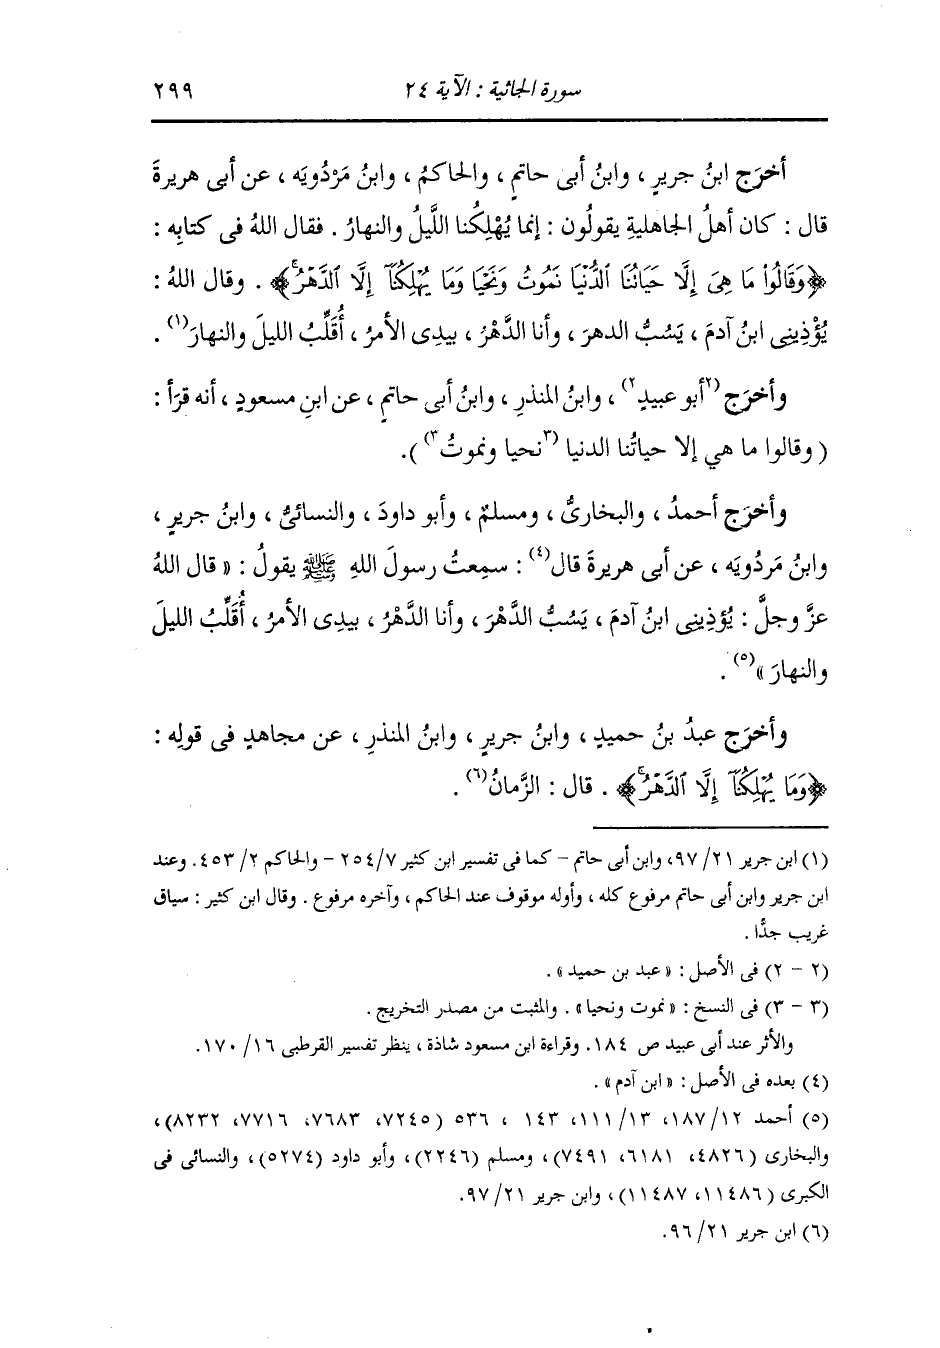 سورة الجاثية : الآية ٢٤ ٢٩٩
أخرَج ابنُ جريرٍ ، وابنُ أبى حاتمٍ ، والحاكمُ ، وابنُ مَرْدُويَه ، عن أبى هريرةَ
قال : كان أهلُ الجاهليةِ يقولُون : إنما يُهْلِكُنا اللَّيلُ والنهارُ . فقال اللهُ فى كتابِه :
﴿وَقَالُوا۟ مَا هِىَ إِلَّا حَيَاتُنَا ٱلدُّنْيَا نَمُوتُ وَنَحْيَا وَمَا يُهْلِكُنَآ إِلَّا ٱلدَّهْرُۚ﴾ . وقال اللهُ :
يُؤْذِينِى ابنُ آدمَ ، يَسُبُّ الدهرَ ، وأنا الدَّهْرُ ، بيدِى الأمرُ ، أُقَلِّبُ الليلَ والنهارَ(١) .
وأخرَج (٢أبو عبيدٍ٢) ، وابنُ المنذرِ ، وابنُ أبى حاتمٍ ، عن ابنِ مسعودٍ ، أنه قرَأ :
( وقالوا ما هي إلا حياتُنا الدنيا (٣نحيا ونموتُ٣) ).
وأخرَج أحمدُ ، والبخارىُّ ، ومسلمٌ ، وأبو داودَ ، والنسائىُّ ، وابنُ جريرٍ ،
وابنُ مَردُويَه ، عن أبى هريرةَ قال(٤) : سمِعتُ رسولَ اللهِ ﷺ يقولُ : « قال اللهُ
عزَّ وجلَّ : يُؤذِينِى ابنُ آدمَ ، يَسُبُّ الدَّهْرَ ، وأنا الدَّهْرُ ، بيدِى الأمرُ ، أُقَلِّبُ الليلَ
والنهارَ »(٥) .
وأخرَج عبدُ بنُ حميدٍ ، وابنُ جريرٍ ، وابنُ المنذرِ ، عن مجاهدٍ فى قولِه :
﴿وَمَا يُهْلِكُنَآ إِلَّا ٱلدَّهْرُۚ﴾ . قال : الزَّمانُ(٦) .
(١) ابن جرير ٢١/ ٩٧، وابن أبى حاتم - كما فى تفسير ابن كثير ٧/ ٢٥٤ - والحاكم ٢/ ٤٥٣. وعند
ابن جرير وابن أبى حاتم مرفوع كله ، وأوله موقوف عند الحاكم ، وآخره مرفوع . وقال ابن كثير : سياق
غريب جدًّا .
(٢ - ٢) فى الأصل : « عبد بن حميد » .
(٣ - ٣) فى النسخ : « نموت ونحيا » . والمثبت من مصدر التخريج .
والأثر عند أبى عبيد ص ١٨٤. وقراءة ابن مسعود شاذة ، ينظر تفسير القرطبى ١٦/ ١٧٠.
(٤) بعده فى الأصل : « ابن آدم » .
(٥) أحمد ١٢/ ١٨٧، ١٣/ ١١١، ١٤٣ ، ٥٣٦ (٧٢٤٥، ٧٦٨٣، ٧٧١٦، ٨٢٣٢)،
والبخارى (٤٨٢٦، ٦١٨١، ٧٤٩١)، ومسلم (٢٢٤٦)، وأبو داود (٥٢٧٤)، والنسائى فى
الكبرى (١١٤٨٦، ١١٤٨٧)، وابن جرير ٢١/ ٩٧.
(٦) ابن جرير ٢١/ ٩٦.